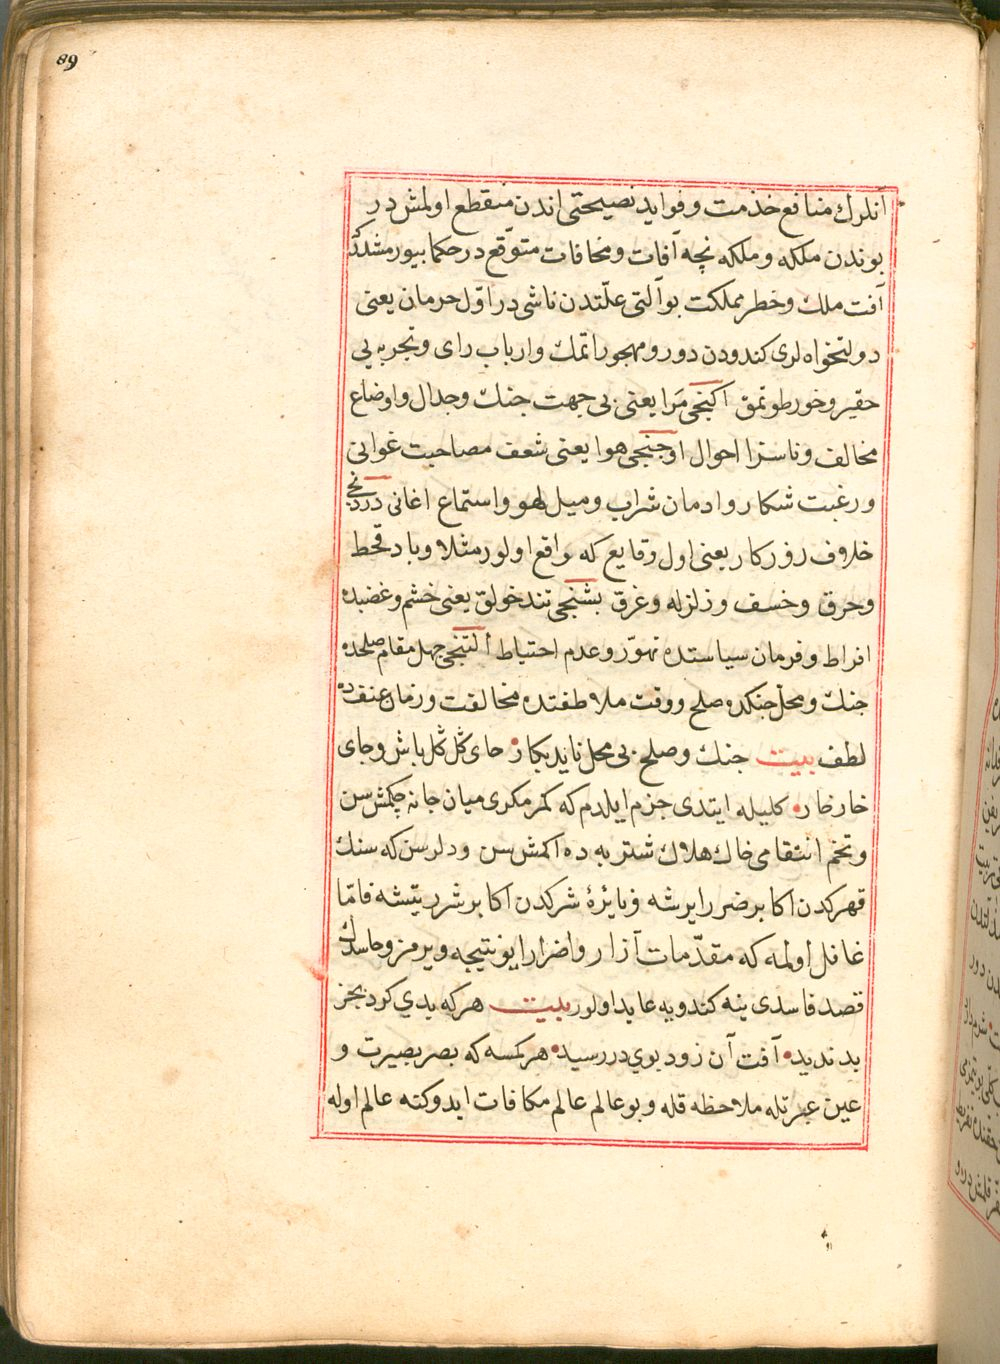 89
آنلرك منافع خذمت و فوايد نصيحتى اندن منقطع اولمش در
بوندن ملكه و ملكه نچه آفات و مخافات متوقّع در حكما بيورمشدركه
آفت ملك و خطر مملكت بو آلتى علّتدن ناشى در اوّل حرمان يعنى
دولتخواه لرى كندودن دور و مهجور اتمك و ارباب راى و تجربه يى
حقير و خور طوتمق اكنجى مَرا يعنى بى جهت جنك و جدال و اوضاع
مخالف و ناسزا احوال اوچنجى هوا يعنى شعف مصاحبت غوانى
و رغبت شكار و ادمان شراب و ميل لهو و استماع اغانى دردنجى
خلاف روزكار يعنى اول وقايع كه واقع اولور مثلا وبا و قحط
و حرق و خسف و زلزله و غرق بشنجى تند خولق يعنى خشم و غضبده
افراط و فرمان سياستده تهوّر و عدم احتياط ألتنجى جهل مقام صلحده
جنك و محلّ جنكده صلح و وقت ملاطفتده مخالفت و زمان عنفده
لطف بيت جنك و صلح بى محل نايد بكار جاى كل كل باش و جاى
خار خار كليله ايتدى جزم ايلدم كه كمر مكرى ميان جانه چكمش سن
و تخم انتقامى خاك هلاك شتربه ده اكمش سن و دلرسن كه سنك
قهركدن اكا بر ضرر ايرشه و نايرۀ شركدن اكا بر شرر يتيشه فامّا
غافل اولمه كه مقدّمات آزار و اضرار ايو نتيجه ويرمز و حاسدك
قصد فاسدى ينه كندويه عايد اولور بيت هركه بدي كرد بجز
بد نديد آفت آن زود بوي در رسيد هر كمسه كه بصر بصيرت و
عين عبرتله ملاحظه قله و بو عالم عالم مكافات ايدوكنه عالم اوله